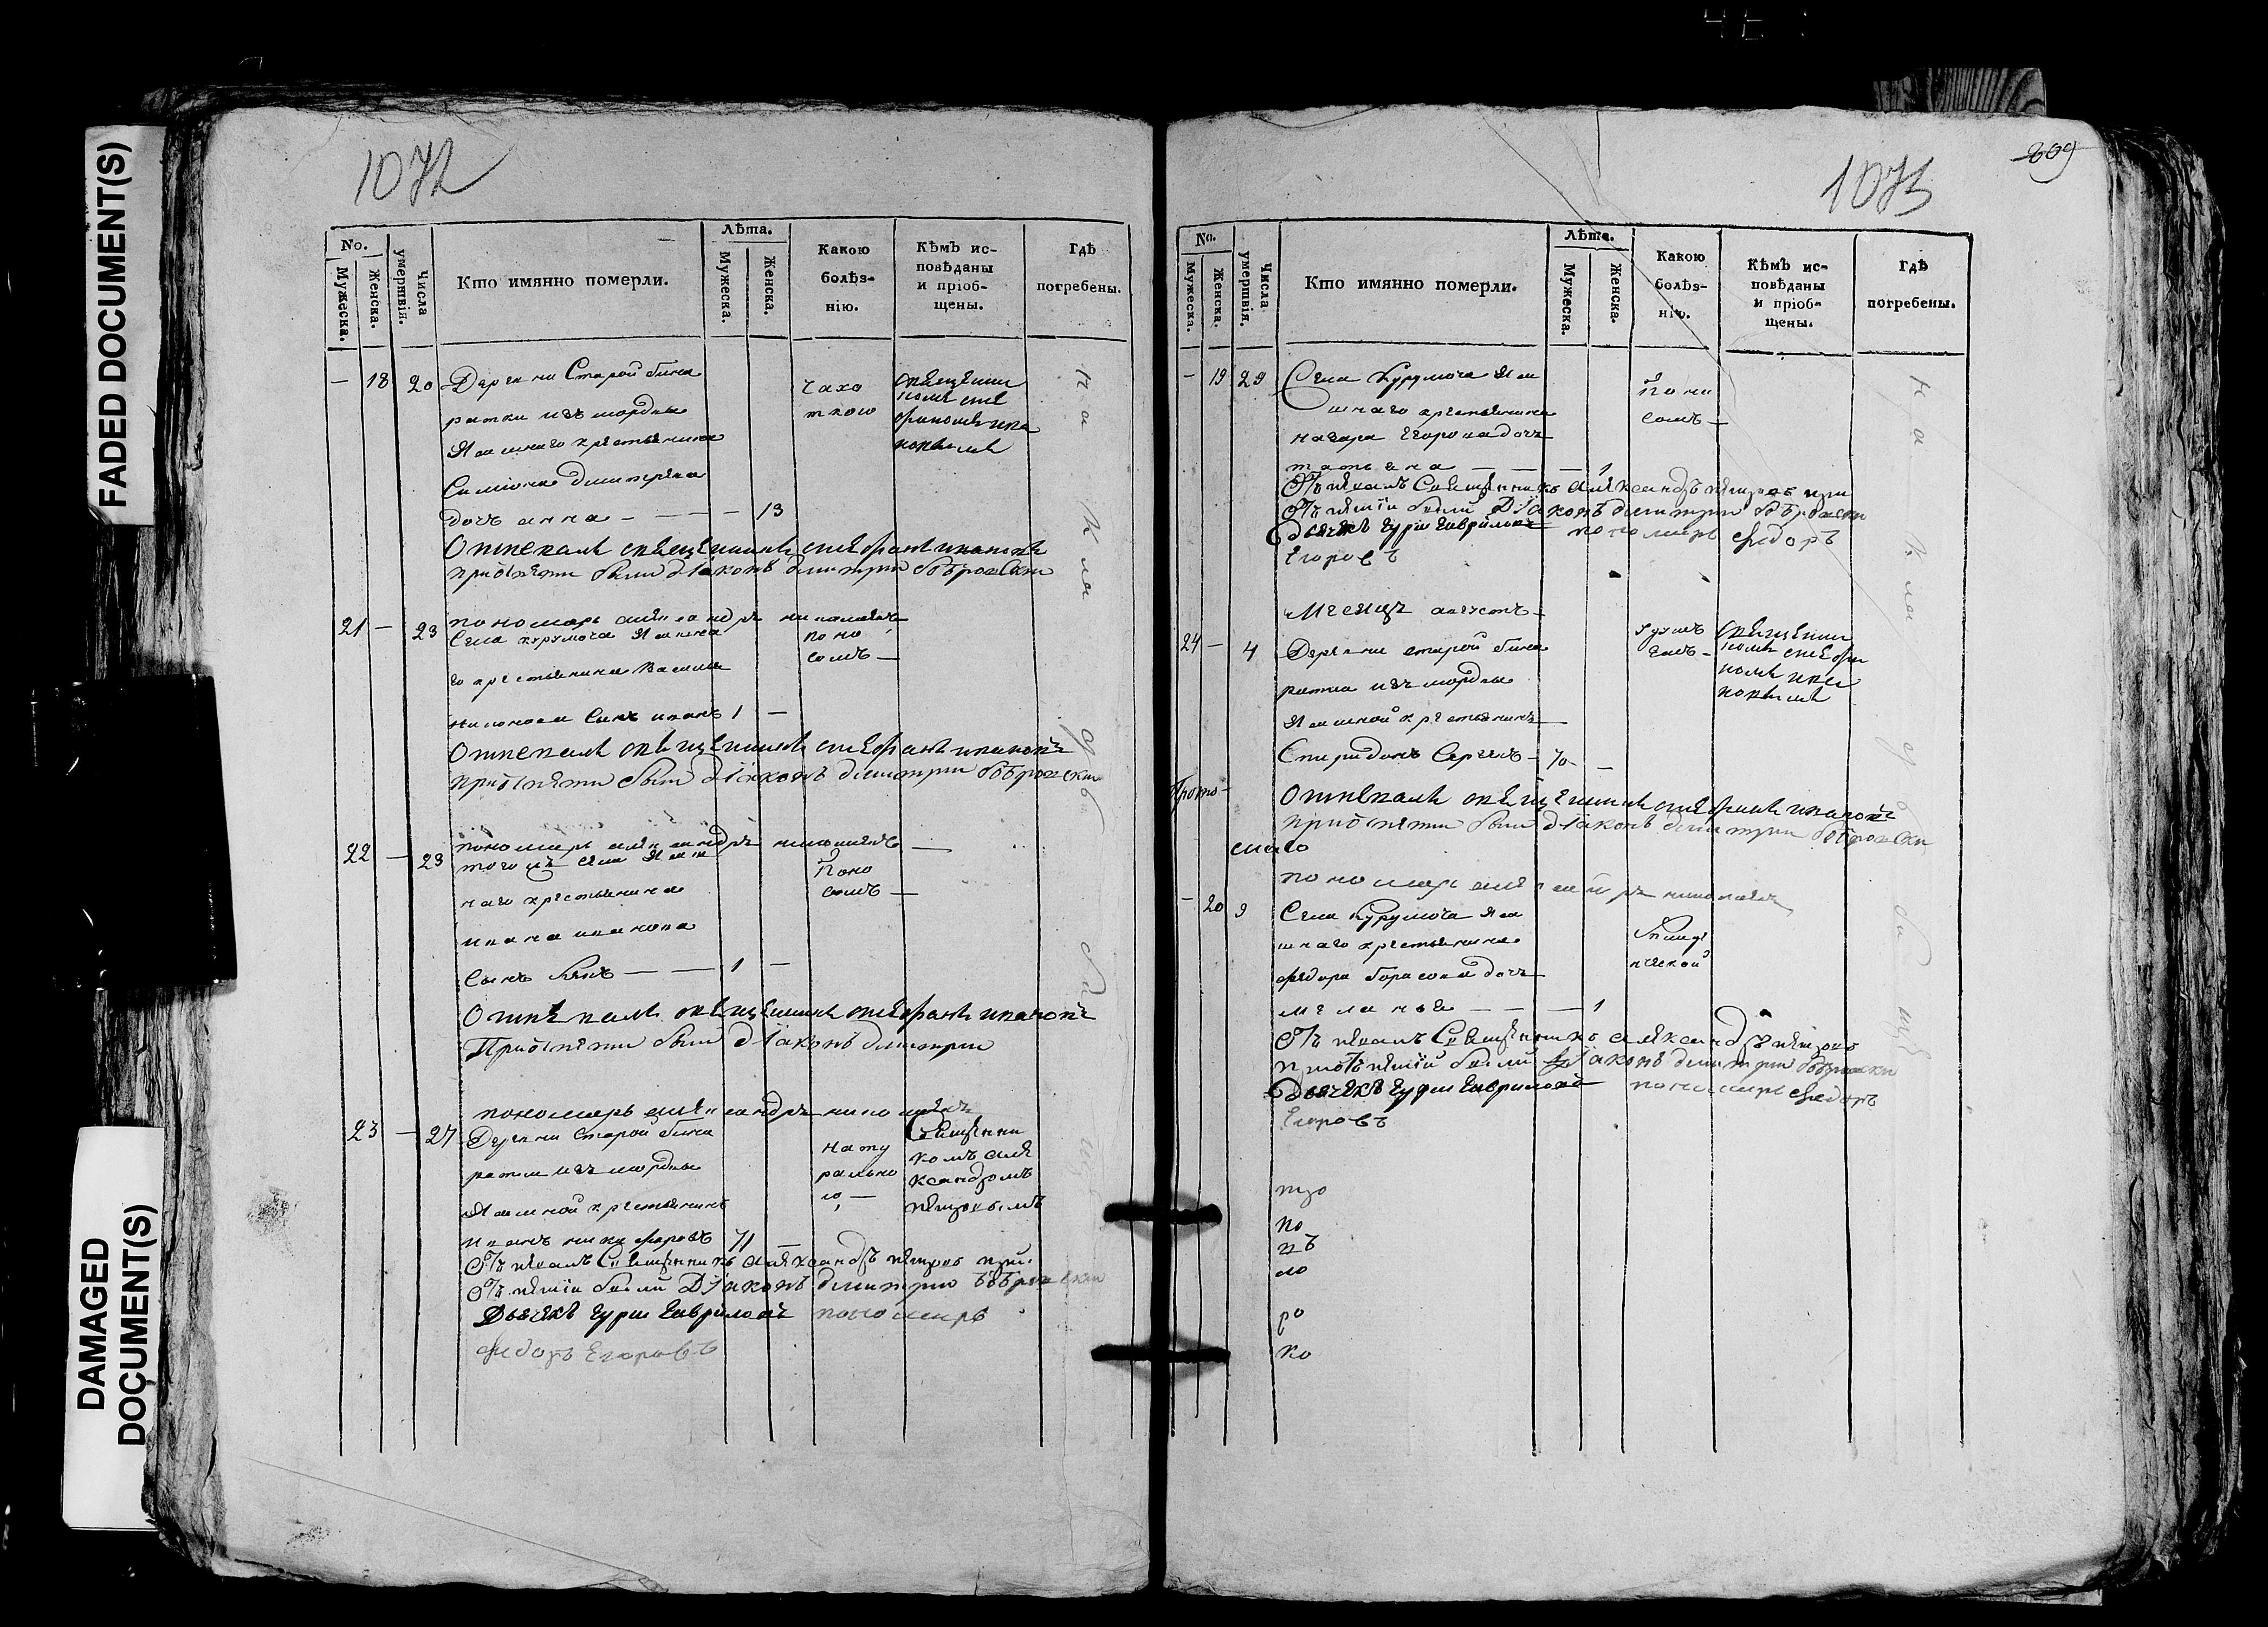 FADED DOCUMENT(S)
DAMAGED
DOCUMENT(S)
1072
No.
Мужеска.
Женска.
Числа
умертвія.
Кто имянно померли.
Лѣта.
Мужеска.
Женска.
Какою
болѣз-
нію.
Кѣмъ ис-
повѣданы
и пріоб-
щены.
Гдѣ
погребены.
— 18 20 Деревни Старой бина
радки изъ мордвы
Ясашнаго крестьянина
Симіона дмитрева
дочь анна — — — 13
чахо
ткою
священни
комъ сте
фаномъ ива
новымъ
Отпевалъ священникъ стефанъ ивановъ
приотпети были діаконъ димитри бобровски
пономарь александръ николаевъ
21 — 23 Села курумоча Ясашна
го крестьянина Васили
николаева Сынъ иванъ 1 —
поно
сомъ —
Отпевалъ священникъ стефанъ ивановъ
приотпети были діаконъ димитри бобровски
пономарь александръ николаевъ —
22 — 23 того жъ села Ясаш
наго крестьянина
ивана иванова
Сынъ — — 1 —
поно
сомъ —
Отпѣвалъ священникъ стефанъ ивановъ
Приотпети были діаконъ димитри
пономарь александръ николаевъ
23 — 27 Деревни Старой бина
радки изъ мордвы
Ясашной крестьянинъ
иванъ никифоровъ 71 —
нату
рально
ю —
Священни
комъ але
ксандромъ
петровымъ
Отъпевалъ Священникъ александръ петровъ при
отъпетіи были Діаконъ димитри бобровски
Дьячекъ гури гавриловъ пономарь
федоръ Егоровъ
на кла дб би ще
1073
809
No.
Мужеска.
Женска.
Числа
умертвія.
Кто имянно померли.
Лѣта.
Мужеска.
Женска.
Какою
болѣз-
нію.
Кѣмъ ис-
повѣданы
и пріоб-
щены.
Гдѣ
погребены.
— 19 29 Села Курумоча Яса
шнаго крестьянина
назара Егорова дочь
татьяна — — — 1
поно
сомъ —
Отъпевалъ Священникъ александръ петровъ при
отъпетіи были Діаконъ димитри бобровски
Дьячекъ гури гавриловъ пономарь федоръ
Егоровъ
Месяцъ августъ
24 — 4 Деревни старой бина
радки изъ мордвы
Ясашной крестьянинъ
Спиридонъ Сергеевъ — 70 —
священни
комъ стефа
номъ ива
новымъ
Отпевалъ священникъ стефанъ ивановъ
приотпети были діаконъ димитри бобровски
пономарь александръ николаевъ
Прото
— 20 9 Села Курумоча Яса
шнаго крестьянина
федора борисова дочь
меланья — — — 1
Отъпевалъ Священникъ александръ петровъ
приотъпетіи были діаконъ димитри бобровски
Дьячекъ гури гавриловъ пономарь федоръ
Егоровъ
на кла д би ще
по
ро
ко